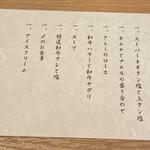 一、スーパーネギタン塩と上タン塩
一、キムチとナムルの盛り合わせ
一、さらしのロース
一、和牛ハラミと和牛サガリ
一、スープ
一、特選和牛タレと塩
一、〆のお食事
一、アイスクリーム